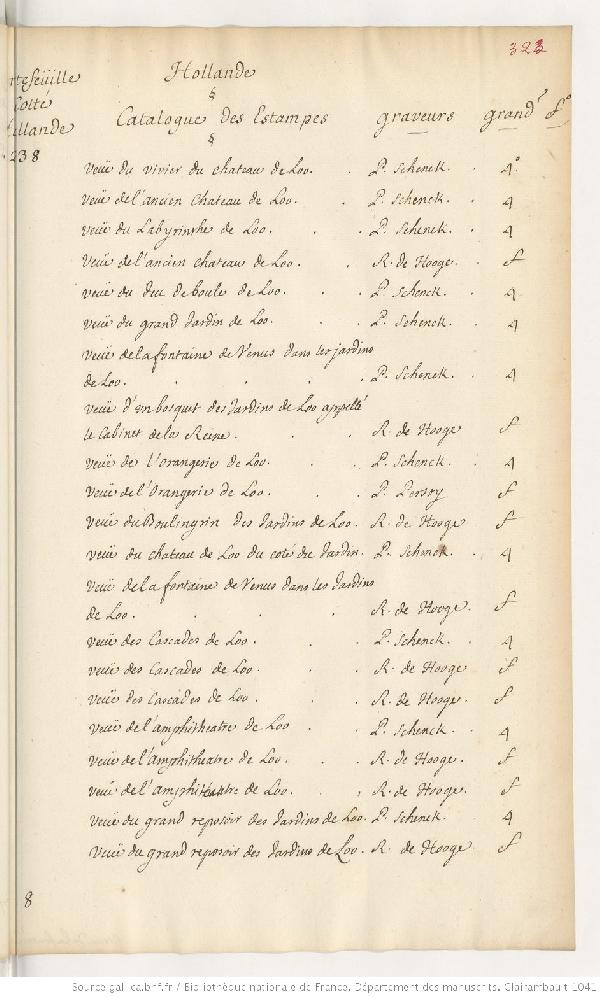 323
Hollande
§
tefeüille
Cotté
llande
238
Catalogue des Estampes graveurs grandr fo
§
Veuë du vivier du chateau de Loo. P. Schenck. 4o
Veuë de l'ancien Chateau de Loo. P. Schenck. 4
Veuë du Labyrinthe de Loo. P. Schenck. 4
Veuë de l'ancien chateau de Loo. R. de Hooge. f
Veuë du Jeu de boule de Loo. P. Schenck. 4
Veuë du grand Jardin de Loo. P. Schenck. 4
Veuë de la fontaine de Venus dans les jardins
de Loo. P. Schenck. 4
Veuë d'un bosquet des Jardins de Loo appellé
le Cabinet de la Reine. R. de Hooge f
Veuë de L'orangerie de Loo. P. Schenck. 4
Veuë de l'Orangerie de Loo. P. Persoy f
Veuë du Boulingrin des Jardins de Loo. R. de Hooge f
Veuë du chateau de Loo du coté du Jardin. P. Schenck. 4
Veuë de la fontaine de Venus dans les Jardins
de Loo. R. de Hooge. f
Veuë des Cascades de Loo. P. Schenck. 4
Veuë des Cascades de Loo. R. de Hooge f
Veuë des Cascades de Loo. R. de Hooge. f
Veuë de l'amphitheatre de Loo P. Schenck. 4
Veuë de l'amphitheatre de Loo. R. de Hooge. f
Veuë de l'amphitéatre de Loo. R. de Hooge. f
Veuë du grand reposoir des Jardins de Loo. P. Schenck. 4
Veuë du grand reposoir des Jardins de Loo. R. de Hooge f
8
Source gallica.bnf.fr / Bibliothèque nationale de France. Département des manuscrits. Clairambault 1041